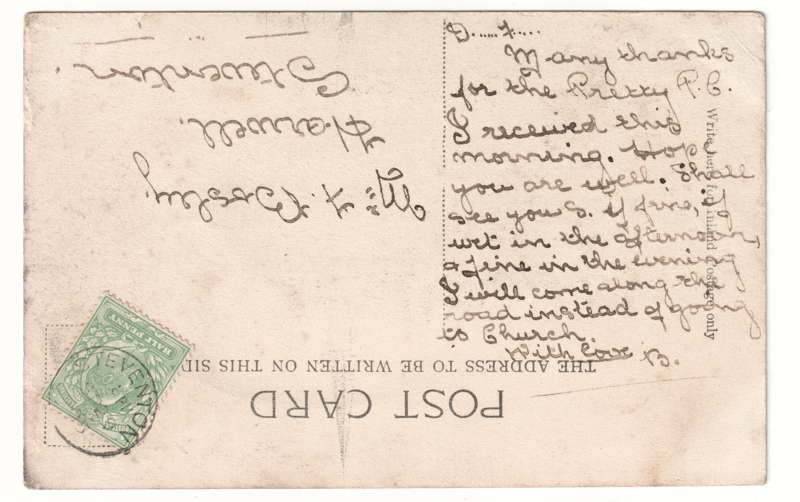 D.....F.....
Many thanks
for the Pretty P.C.
I received this
morning. Hope
you are well. Shall
see you S. if fine, if
wet in the afternoon,
& fine in the evening
I will come along the
road instead of going
to Church.
With Love B.
Write here for Inland Postage only
POST CARD
THE ADDRESS TO BE WRITTEN ON THIS SIDE
HALF PENNY
STEVENTON
Mr F. Bosley
Harwell.
Steventon.